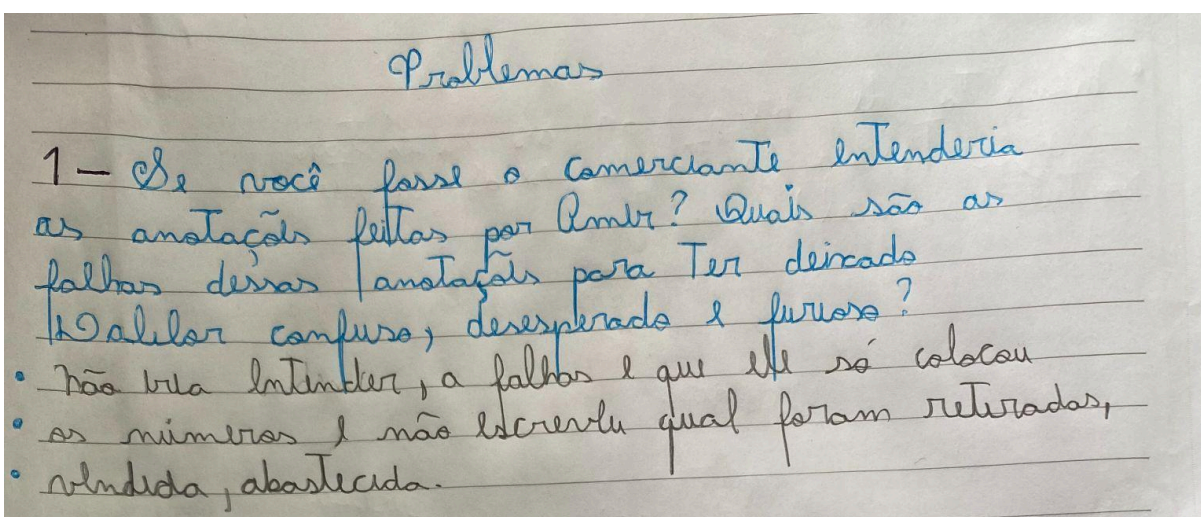 Problemas
1- Se você fosse o comerciante entenderia
as anotações feitas por Amir? Quais são as
falhas dessas anotações para Ter deixado
confuso, desesperado e furioso?
• não iria entender, a falhas e que ele só colocou
• os números e não escreveu qual foram retiradas,
• vendida, abastecida.